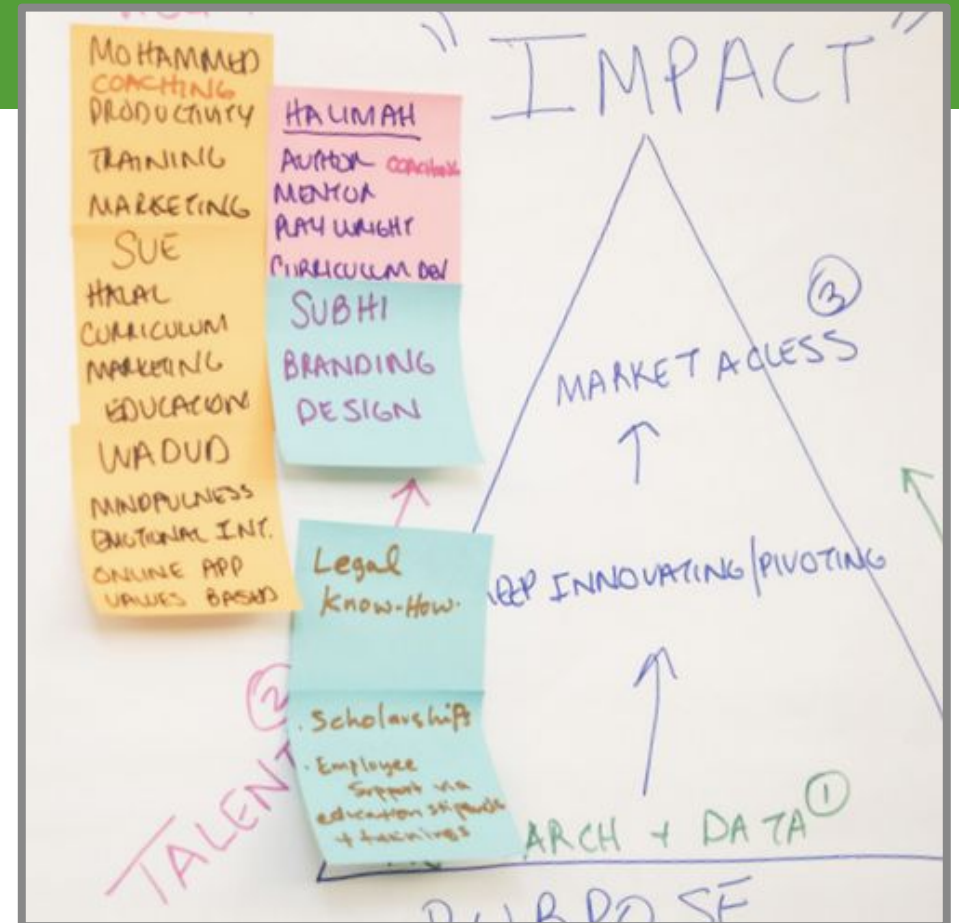 MOHAMMED
COACHING
PRODUCTIVITY
TRAINING
MARKETING
SUE
HALAL
CURRICULUM
MARKETING
EDUCATION
WADUD
MINDFULNESS
EMOTIONAL INT.
ONLINE APP
VALUES BASED
HALIMAH
AUTHOR COACHING
MENTOR
PLAY WRIGHT
CURRICULUM DEV
SUBHI
BRANDING
DESIGN
Legal
Know-How.
. Scholarships
. Employee
Support via
education stipends
+ trainings
TALENT
②
"IMPACT"
③
MARKET ACCESS
EEP INNOVATING/PIVOTING
ARCH + DATA ①
PURPOSE